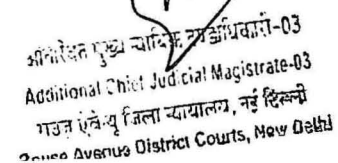 अतिरिक्त मुख्य न्यायिक दण्डाधिकारी-03
Additional Chief Judicial Magistrate-03
राउज एवेन्यू जिला न्यायालय, नई दिल्ली
Rouse Avenue District Courts, New Delhi